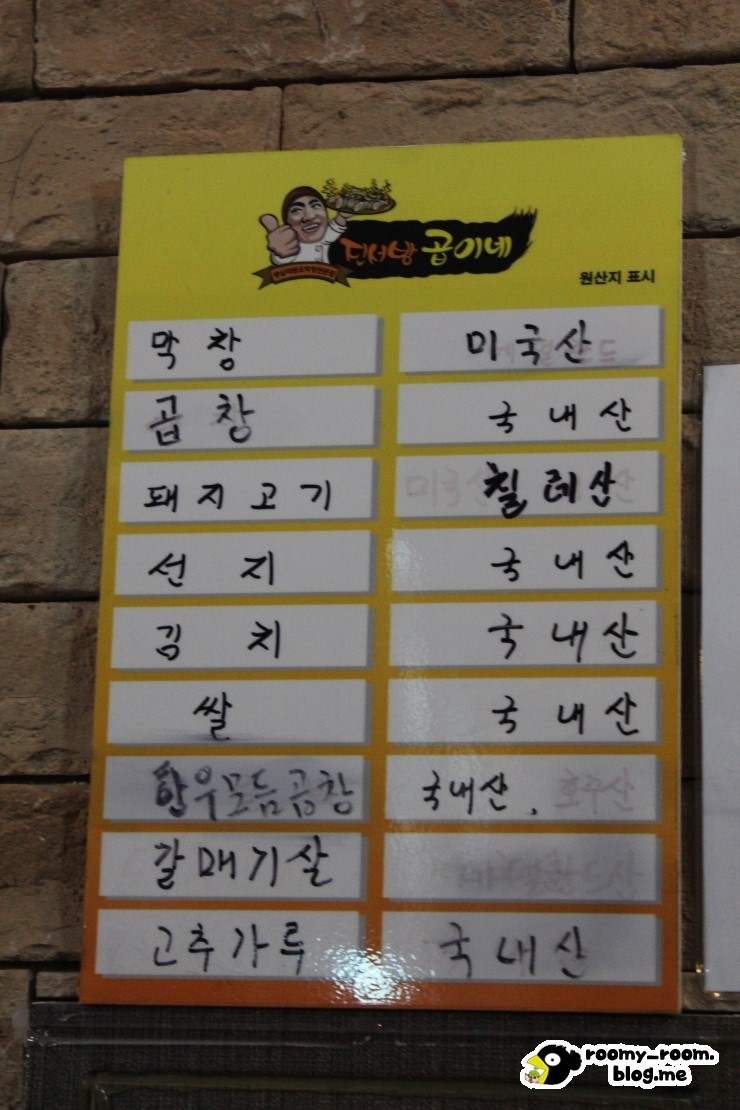 곱이네
원산지 표시
막창 미국산
곱창 국내산
돼지고기 칠레산
선지 국내산
김치 국내산
쌀 국내산
한우모듬곱창 국내산, 호주산
갈매기살 네델란드산
고추가루 국내산
roomy-room.
blog.me